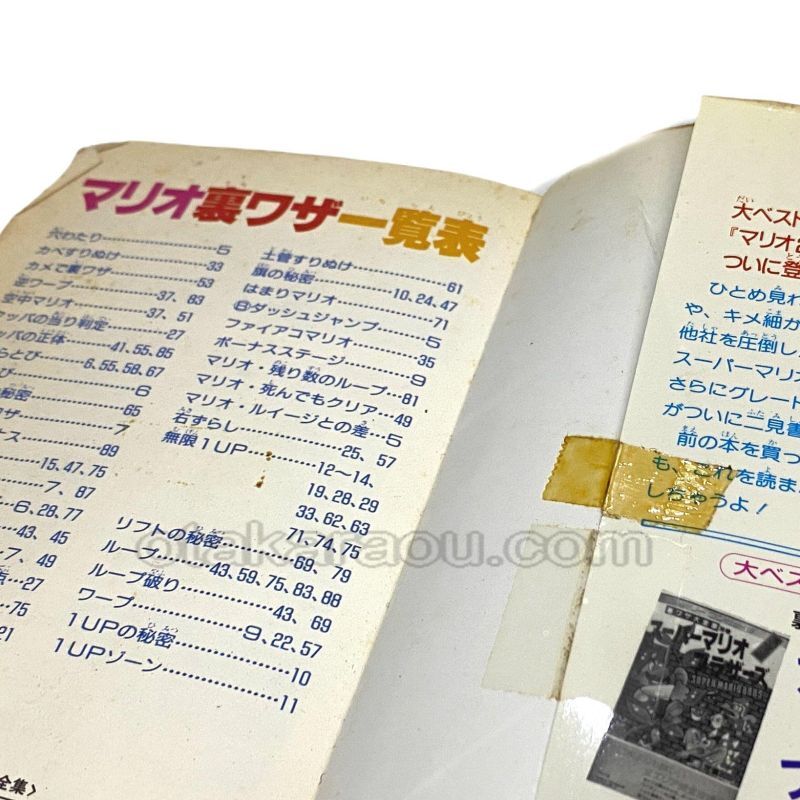 マリオ裏ワザ一覧表
穴わたり……5
カベすりぬけ……33
カメで裏ワザ……53
逆ワープ……37、83
空中マリオ……37、51
ッパの当り判定……27
ッパの正体……41、55、85
らとび……6、55、58、67
び……6
秘密……65
ザ……7
ナス……89
15、47、75
7、87
6、28、77
43、45
7、49
27
75
21
土管すりぬけ……61
旗の秘密……10、24、47
はまりマリオ……71
Ⓑダッシュジャンプ……5
ファイアコマリオ……35
ボーナスステージ……9
マリオ・残り数のループ…81
マリオ・死んでもクリア…49
マリオ・ルイージとの差…5
石ずらし……25、57
無限1UP……12〜14、
19、28、29
33、62、63
71、74、75
リフトの秘密……69、79
ループ……43、59、75、83、88
ループ破り……43、69
ワープ……9、22、57
1UPの秘密……10
1UPゾーン……11
全集〉
大ベスト
『マリオの
ついに登
ひとめ見れ
や、キメ細か
他社を圧倒し
スーパーマリオ
さらにグレート
がついに二見書
前の本を買っ
も、これを読ま
しちゃうよ！
大ベス
スーパーマリオ
ブラザーズ
SUPER MARIO BROS.
otakaraou.com